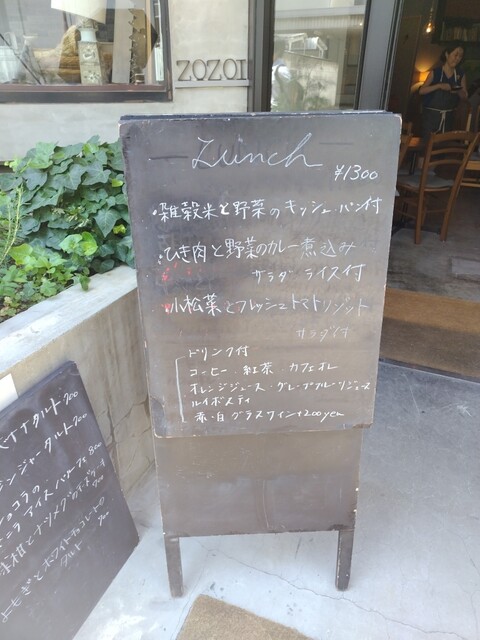 ZOZOI
Lunch
¥1300
・雑穀米と野菜のキッシュ・パン付
・ひき肉と野菜のカレー煮込み
サラダ ライス付
・小松菜とフレッシュトマトリゾット
サラダ付
ドリンク付
コーヒー・紅茶・カフェオレ
オレンジジュース・グレープフルーツジュース
ルイボスティ
赤・白 グラスワイン+200yen
ナナタルト 700
ジンジャータルト 700
ショコラの
バニラアイス・バゲーフェ 800
700
よもぎとホワイトチョコレートの
タルト